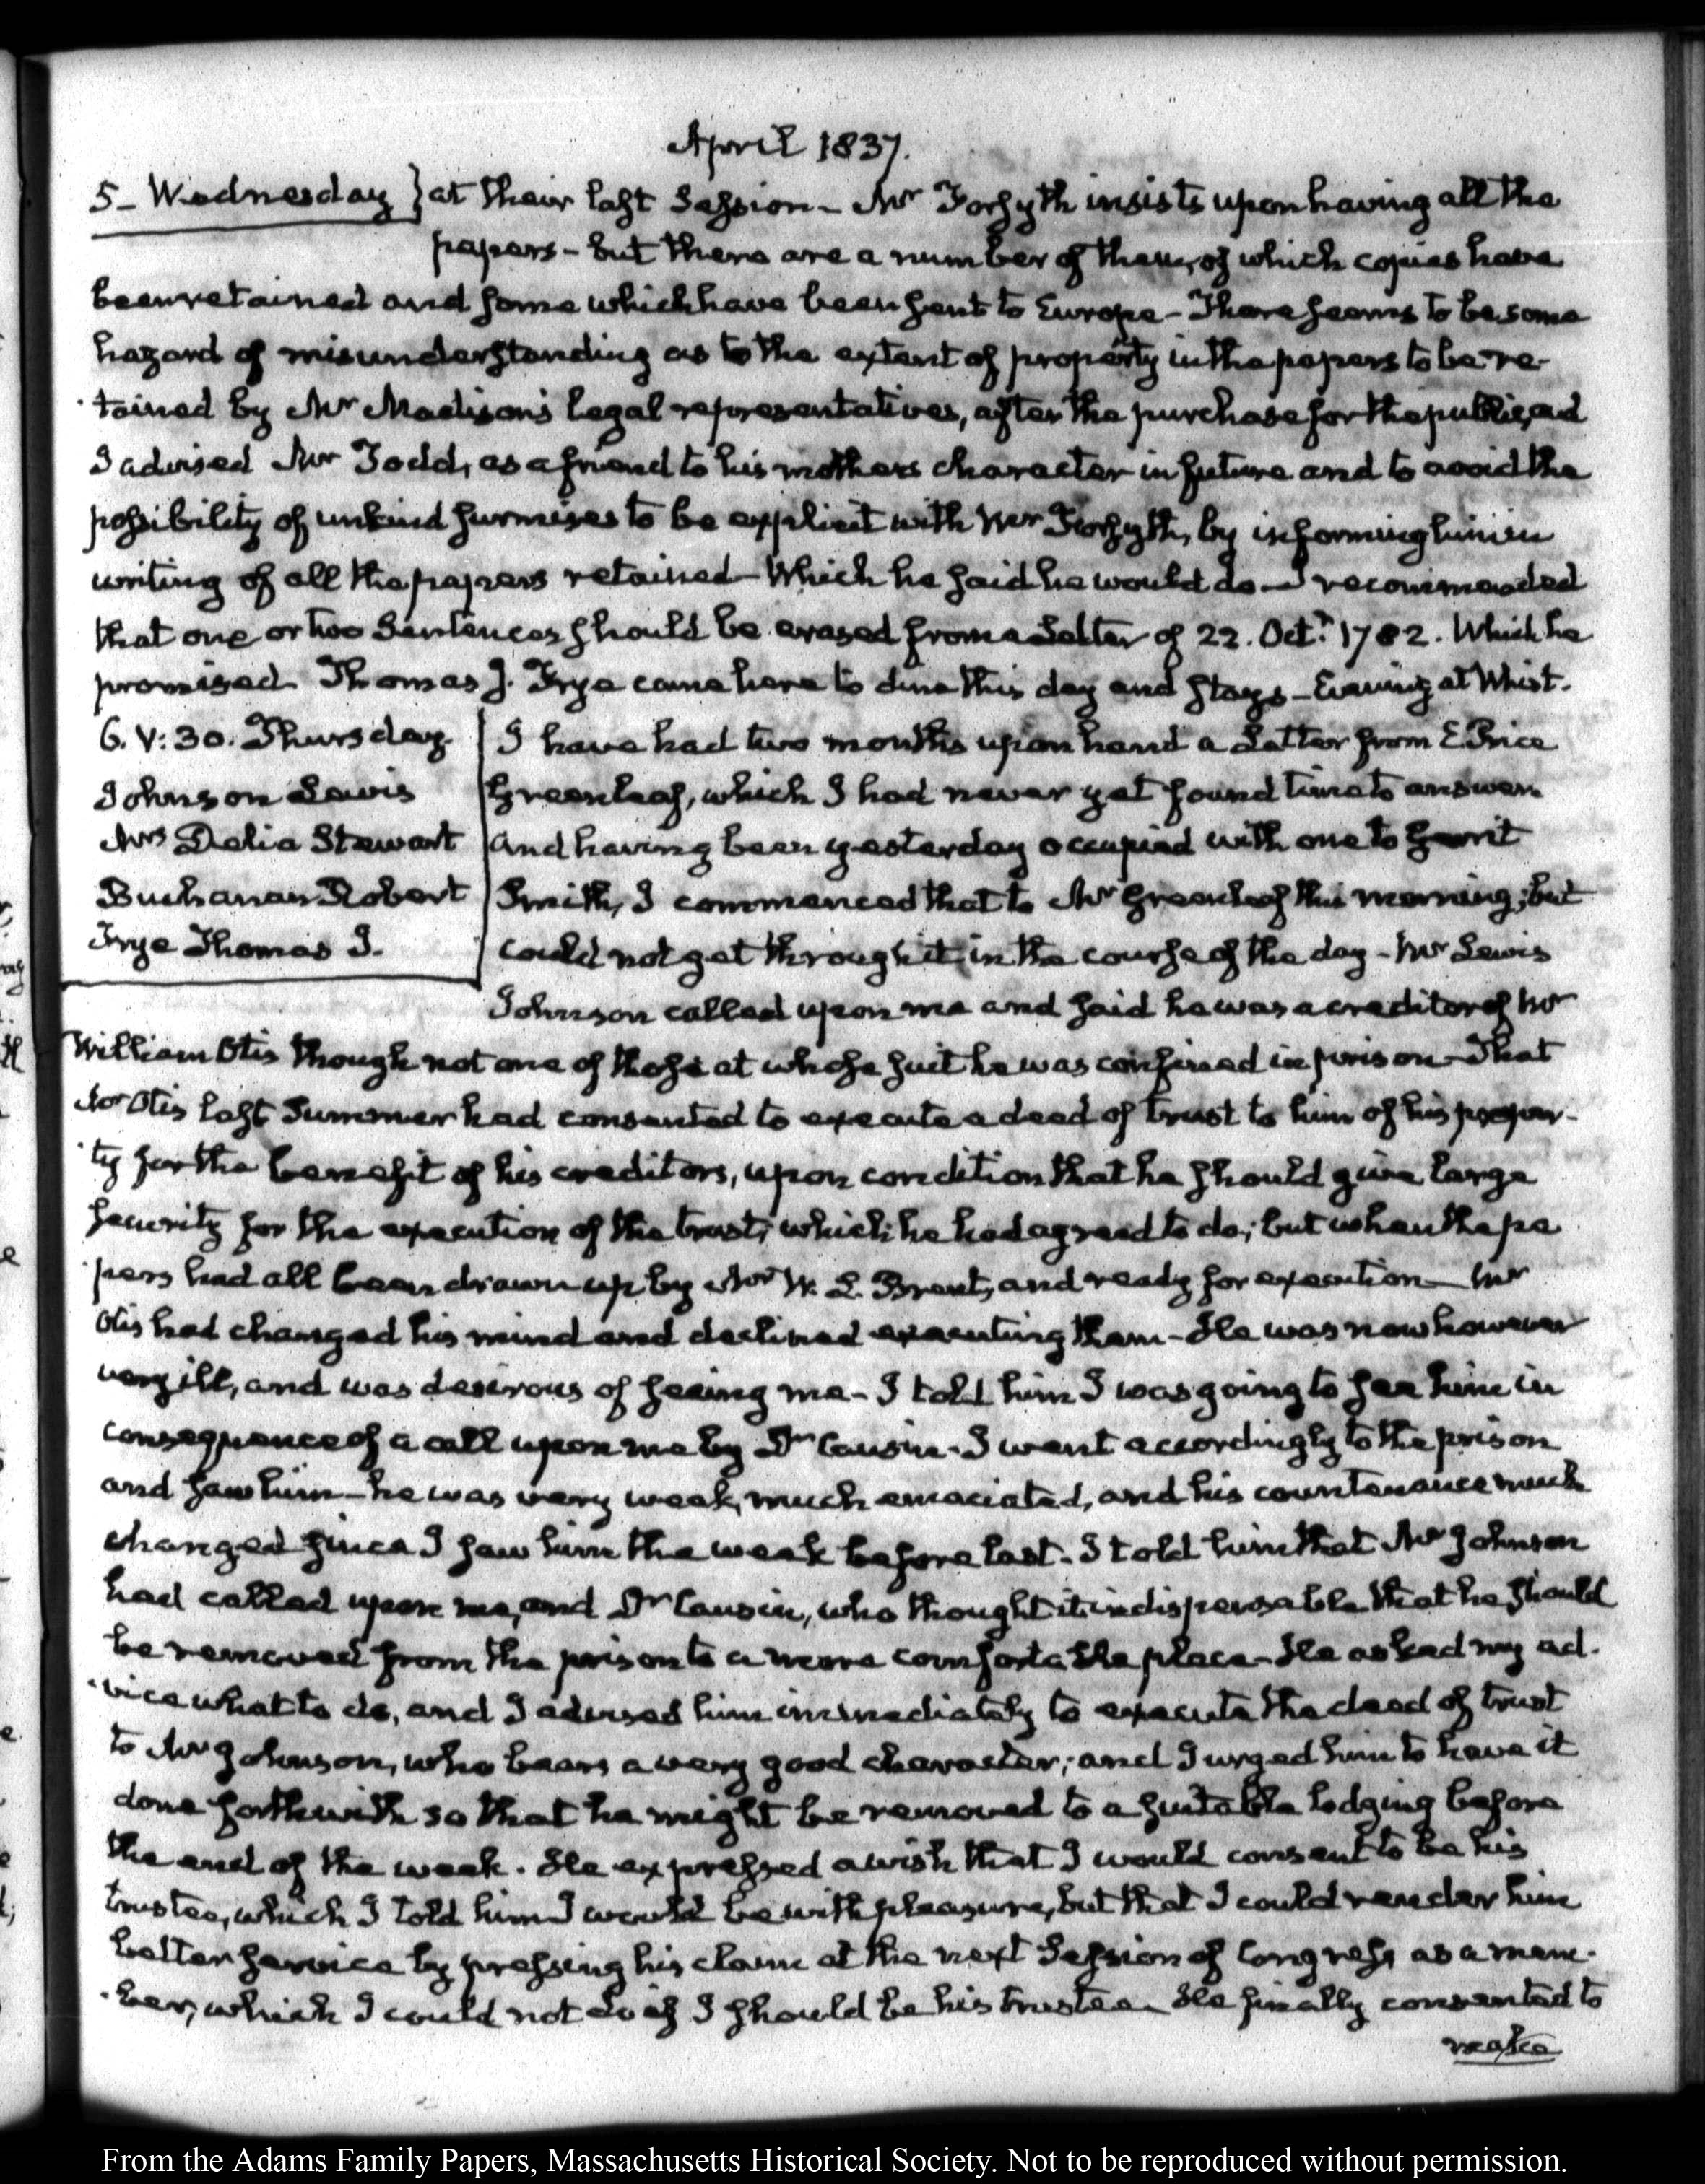 April 1837.
5_ Wednesday } at their last Session_ Mr Forsyth insists upon having all the
papers_ but there are a number of them, of which copies have
been retained and some which have been sent to Europe_ There seems to be some
hazard of misunderstanding as to the extent of property in the papers to be re-
tained by Mr Madison's legal representatives, after the purchase for the public, and
I advised Mr Todd, as a friend to his mothers character in future and to avoid the
possibility of unkind surmises to be explicit with Mr Forsyth, by informing him in
writing of all the papers retained_ Which he said he would do_ I recommended
that one or two Sentences should be erased from a Letter of 22. Octr. 1782. Which he
promised. Thomas J. Frye came here to dine this day and stays_ Evening at Whist.
6. V: 30. Thursday.
Johnson Lewis
Mrs Delia Stewart
Buchanan Robert
Frye Thomas J.
I have had two months upon hand a Letter from E Price
Greenleaf, which I had never yet found time to answer.
And having been yesterday occupied with one to Gerrit
Smith, I commenced that to Mr Greenleaf this morning; but
could not get through it in the course of the day_ Mr Lewis
Johnson called upon me and said he was a creditor of Mr
William Otis though not one of those at whose suit he was confined in prison_ That
Mr Otis last Summer had consented to execute a deed of trust to him of his proper-
ty for the benefit of his creditors, upon condition that he should give large
security for the execution of the trust; which he had agreed to do; but when the pa
pers had all been drawn up by Mr W. L. Brent, and ready for execution_ Mr
Otis had changed his mind and declined executing them_ He was now however
very ill, and was desirous of seeing me_ I told him I was going to see him in
consequence of a call upon me by Dr Causin. I went accordingly to the prison
and saw him_ he was very weak, much emaciated, and his countenance much
changed since I saw him the week before last. I told him that Mr Johnson
had called upon me, and Dr Causin, who thought it indispensable that he should
be removed from the prison to a more comfortable place_ He asked my ad-
vice what to do, and I advised him immediately to execute the deed of trust
to Mr Johnson, who bears a very good character; and I urged him to have it
done forthwith so that he might be removed to a suitable lodging before
the end of the week. He expressed a wish that I would consent to be his
trustee, which I told him I would be with pleasure, but that I could render him
better service by pressing his claim at the next Session of Congress as a mem-
ber, which I could not do if I should be his trustee_ He finally consented to
make
From the Adams Family Papers, Massachusetts Historical Society. Not to be reproduced without permission.